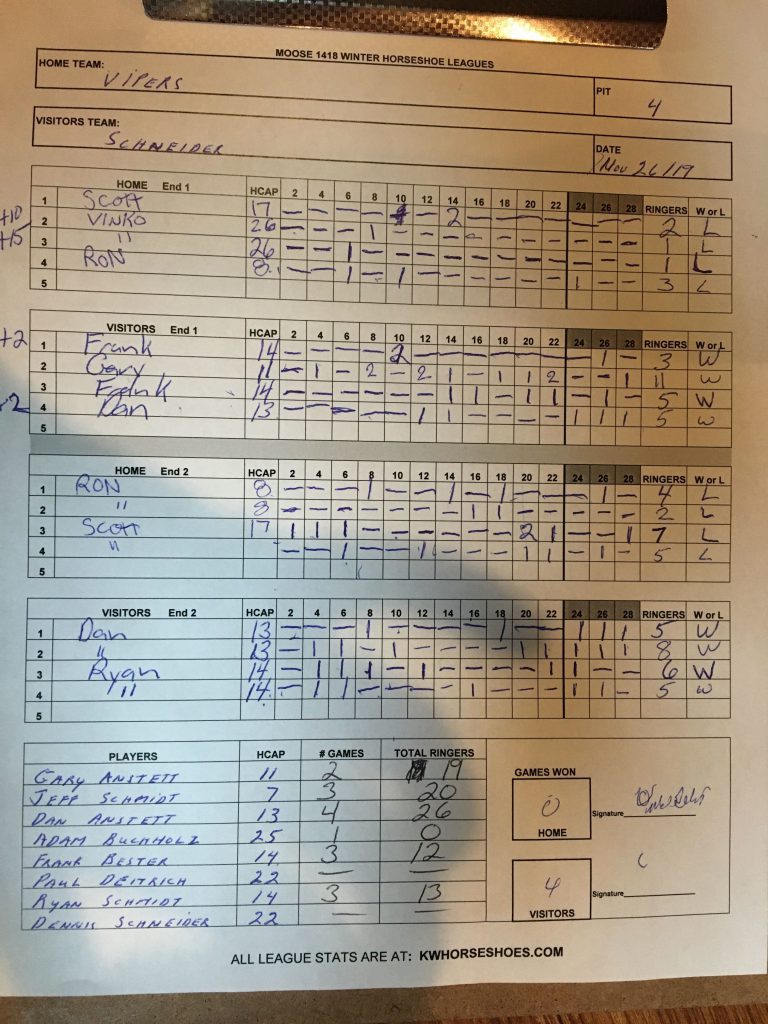 MOOSE 1418 WINTER HORSESHOE LEAGUES
HOME TEAM: VIPERS
PIT 4
VISITORS TEAM: SCHNEIDER
DATE Nov 26/19
HOME End 1 HCAP 2 4 6 8 10 12 14 16 18 20 22 24 26 28 RINGERS W or L
+10
1 SCOTT 17 — — — — — — 2 — — — — — — — 2 L
2 VINKO 26 — — — 1 — — — — — — — — — — 1 L
+15
3 " 26 — — 1 — — — — — — — — — — — 1 L
4 RON 8 — — 1 — 1 — — — — — — 1 — — 3 L
5
VISITORS End 1 HCAP 2 4 6 8 10 12 14 16 18 20 22 24 26 28 RINGERS W or L
+2
1 Frank 14 — — — — 2 — — — — — — — 1 — 3 W
2 Gary 11 — 1 — 2 — 2 1 — 1 1 2 — — 1 11 W
3 Frank 14 — — — — — — 1 1 — 1 1 — 1 — 5 W
4 Dan 13 — — — — — 1 1 — — — — 1 1 1 5 W
5
HOME End 2 HCAP 2 4 6 8 10 12 14 16 18 20 22 24 26 28 RINGERS W or L
1 RON 8 — — — 1 — — 1 — 1 — — — 1 — 4 L
2 " 8 — — — — — — — 1 1 — — — — — 2 L
3 SCOTT 17 1 1 1 — — — — — — 2 1 — — 1 7 L
4 " — — 1 — — 1 — — — 1 1 — 1 — 5 L
5
VISITORS End 2 HCAP 2 4 6 8 10 12 14 16 18 20 22 24 26 28 RINGERS W or L
1 Dan 13 — — — 1 — — — — 1 — — 1 1 1 5 W
2 " 13 — 1 1 — 1 — — — — 1 1 1 1 1 8 W
3 Ryan 14 — 1 1 1 — 1 — — — — 1 1 — — 6 W
4 " 14 — 1 1 — — — — 1 — — — 1 1 — 5 W
5
PLAYERS HCAP # GAMES TOTAL RINGERS
GARY ANSTETT 11 2 19
JEFF SCHMIDT 7 3 20
DAN ANSTETT 13 4 26
ADAM BUCHHOLZ 25 1 0
FRANK BESTER 14 3 12
PAUL DEITRICH 22 — —
RYAN SCHMIDT 14 3 13
DENNIS SCHNEIDER 22 — —
GAMES WON
0
HOME
Signature
4
VISITORS
Signature
ALL LEAGUE STATS ARE AT: KWHORSESHOES.COM